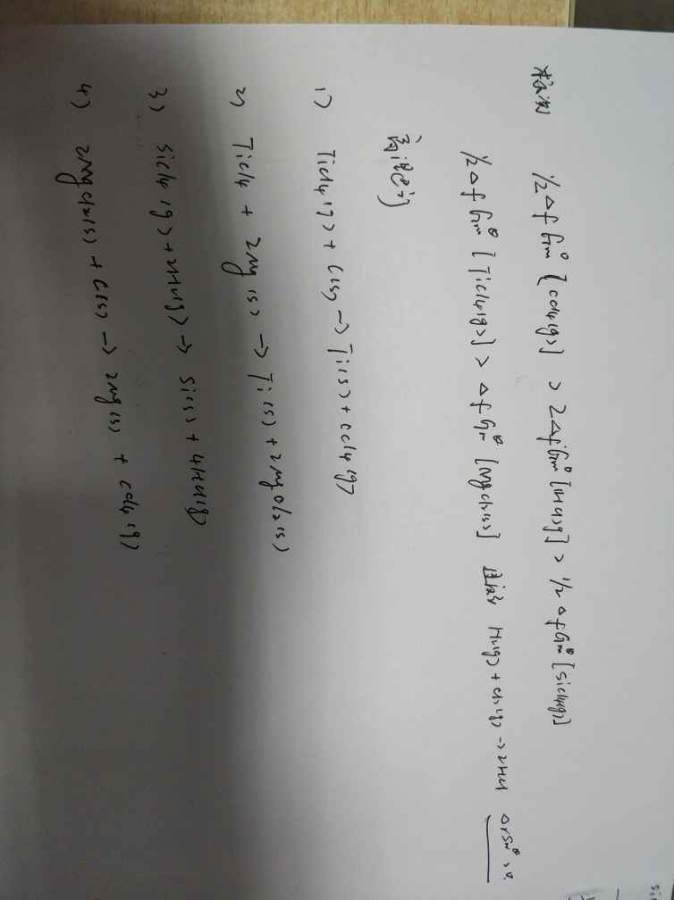 ½ΔfGmθ [CCl4(g)] > 2ΔfGmθ [HCl(g)] > ½ΔfGmθ [SiCl4(g)]
½ΔfGmθ [TiCl4(g)] > ΔfGmθ [MgCl2(s)] H2(g) + Cl2(g) → 2HCl ΔrSmθ >0
高温下
1) TiCl4(g) + C(s) → Ti(s) + CCl4(g)
2) TiCl4 + 2Mg(s) → Ti(s) + 2MgCl2(s)
3) SiCl4(g) + 2H2(g) → Si(s) + 4HCl(g)
4) 2MgCl2(s) + C(s) → 2Mg(s) + CCl4(g)